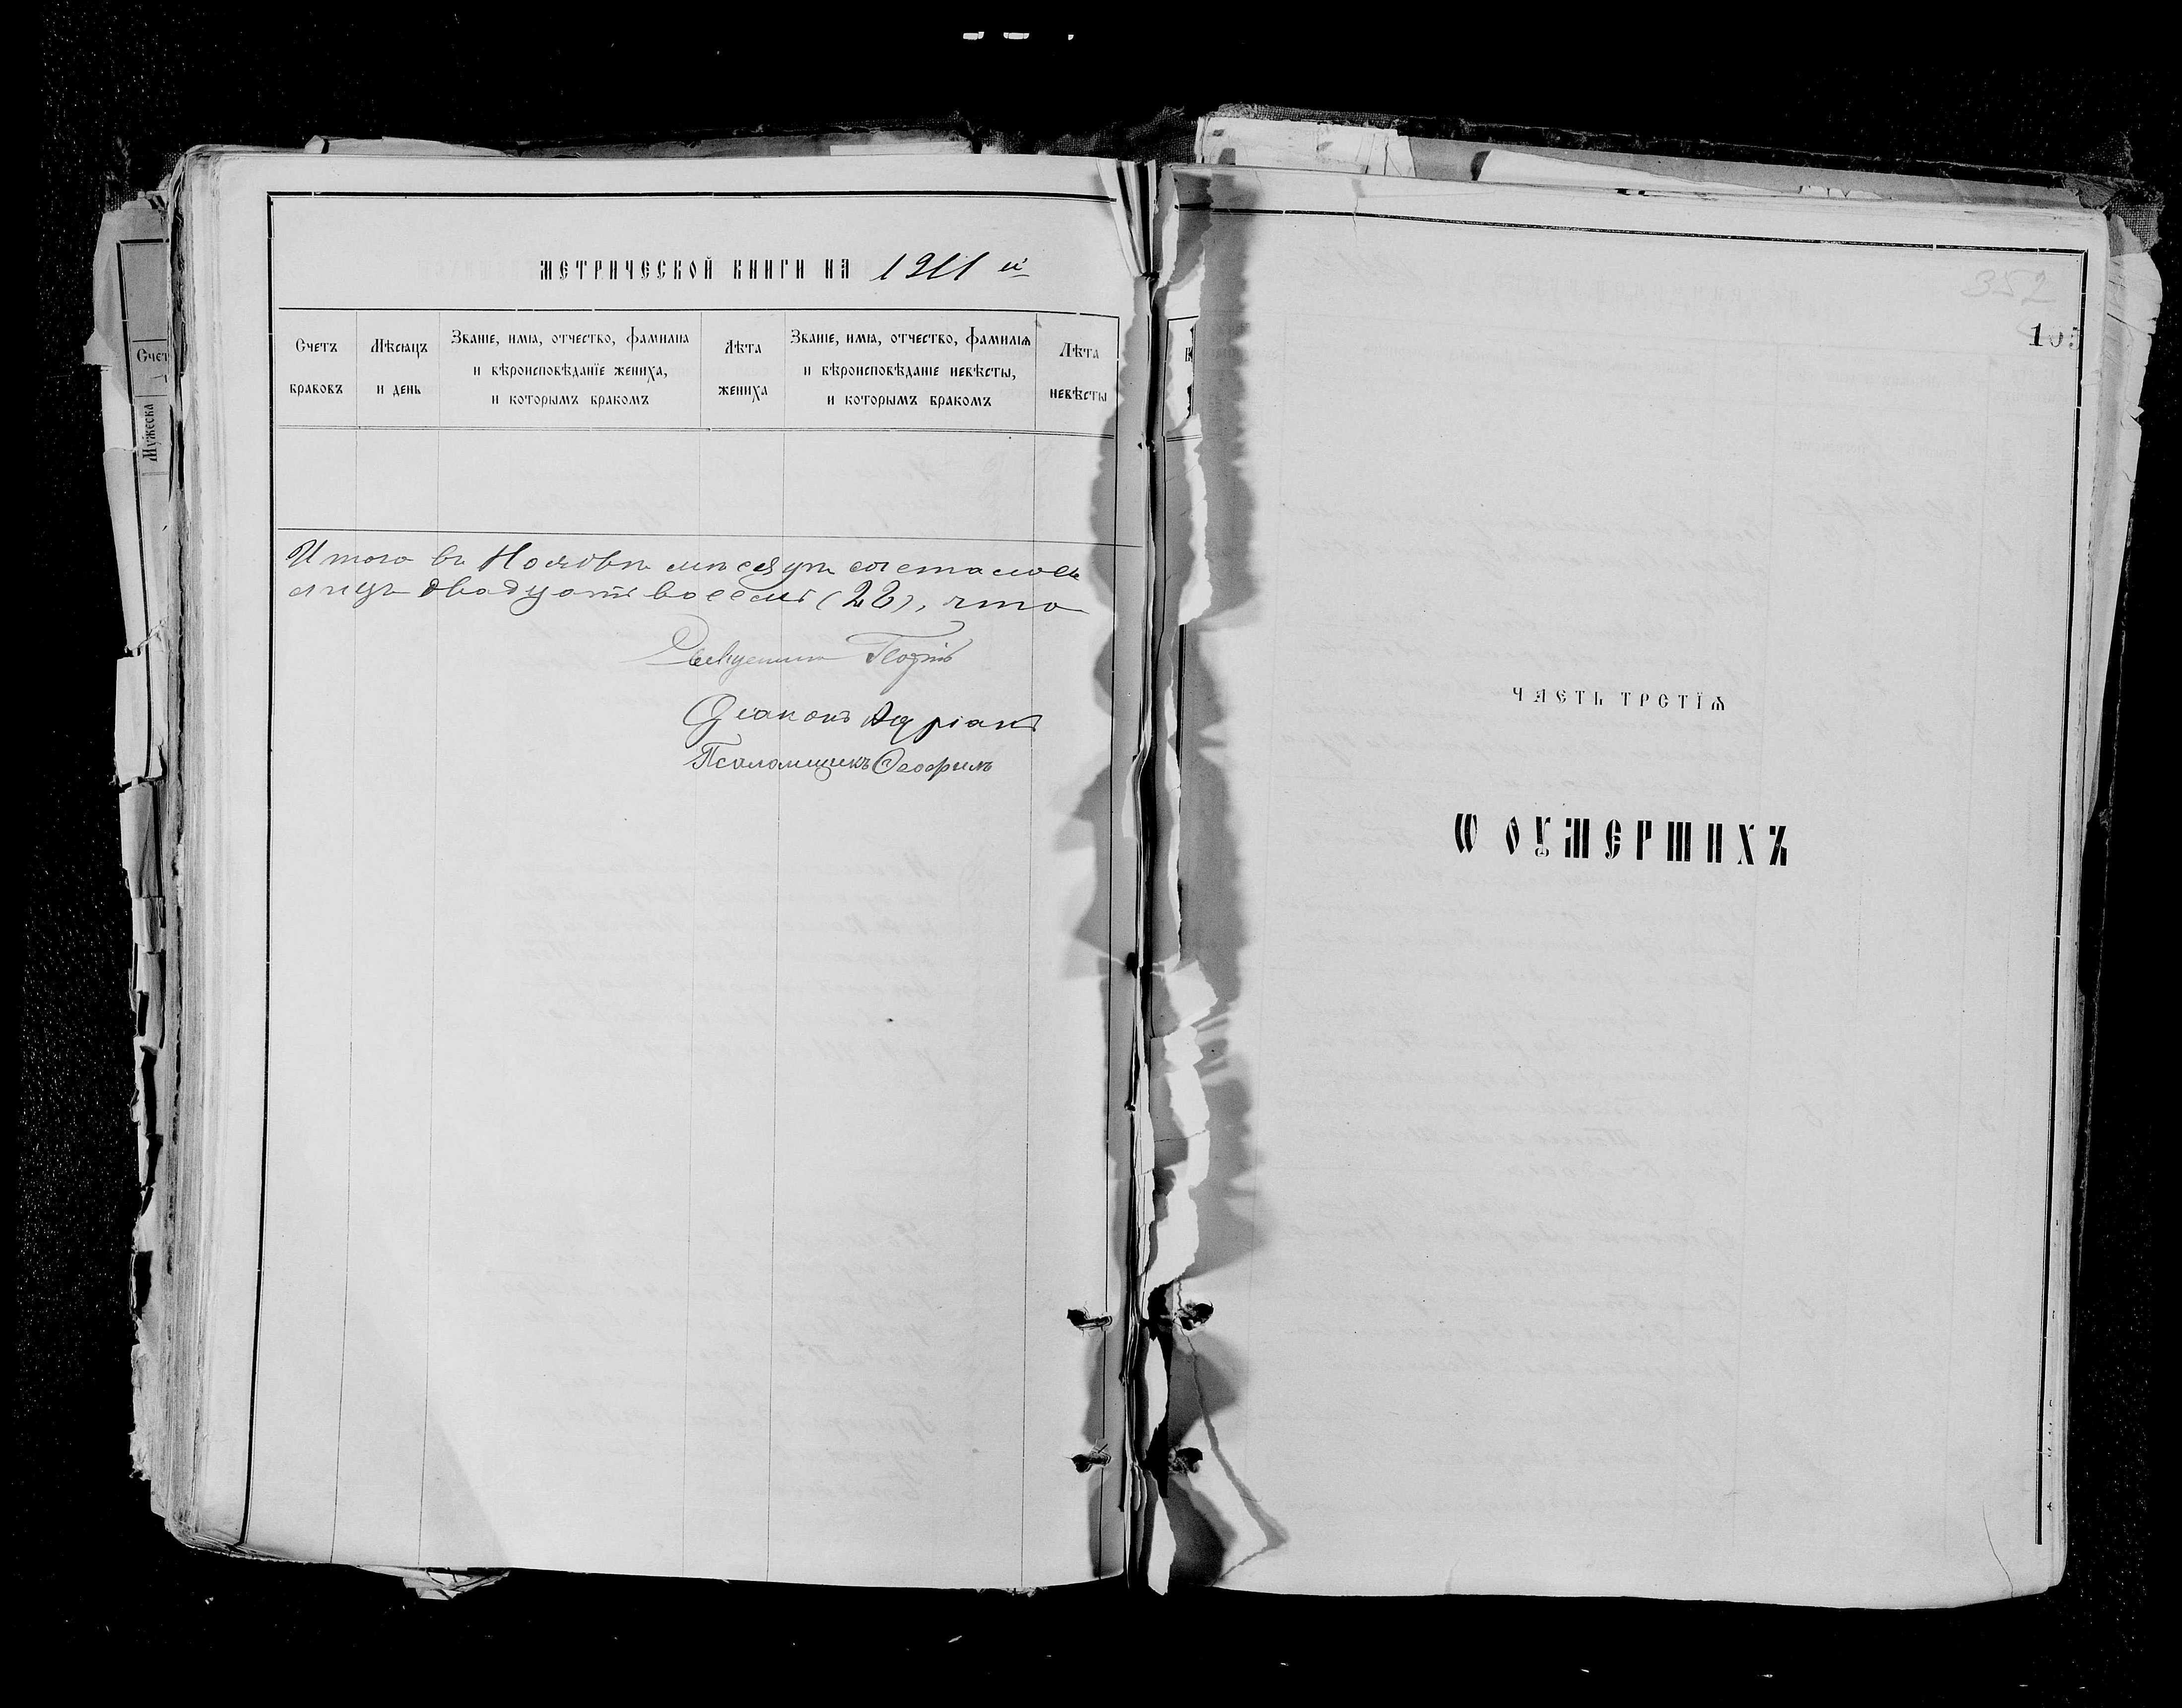 МЕТРИЧЕСКОЙ КНИГИ НА 1911 й
Счетъ браковъ
Мѣсяцъ и день
Званіе, имѧ, отчество, фамилиа
и вѣроисповѣданїе жениха,
и которымъ бракомъ
Лѣта жениха
Званіе, имѧ, отчество, фамилїѧ
и вѣроисповѣданіе невѣсты,
и которымъ бракомъ
Лѣта невѣсты
Счет
Мужеска
Итого въ Ноябрѣ мѣсяцѣ
двадцать восемь (28), что
Священникъ Георгій
Діаконъ Адріанъ
Псаломщикъ Ѳеофилъ
352
105
ЧАСТЬ ТРЕТЇѦ
Ѡ ОУМЕРШИХЪ